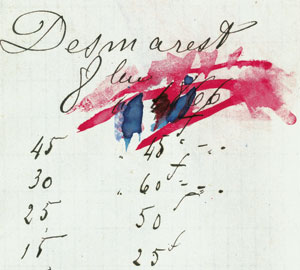 Desmarest
8
45 " 45 f " - .
30 " 60 f " - .
25 50
15 25 f